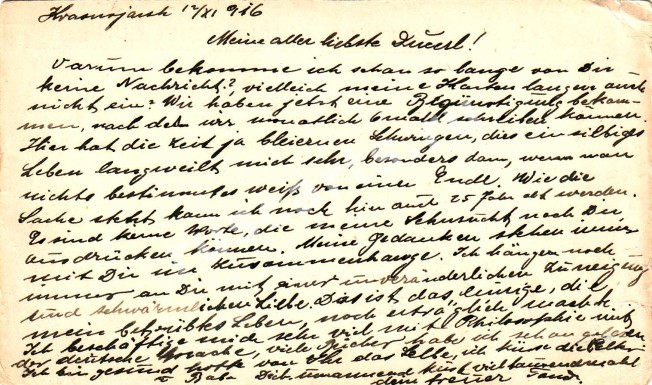 Krasnojarsk 12/XI 916
Meine aller liebste Zucerl!
Varum bekomme ich schon so lange von Dir
keine Nachricht?, vielleich meine Karten langen auch
nicht ein? Wir haben jetzt eine Bigünstigung bekom-
men, nach der wir monatlich 6 mal schreiben können.
Hier hat die Zeit ja bleiernen Schwingen, dies einsilbiges
Leben langweilt mich sehr, besonders dann, wenn man
nichts bestimmtes weiß von einer Ende. Wie die
Sache steht kann ich noch hier auch 25 Jahr alt werden.
Es sind keine Worte, die meine Sehnsucht nach Dir
ausdrücken können. Meine Gedanken stehen immer
mit Dir im Zusammenhange. Ich hängen noch
immer an Dir mit einer unveränderlichen Zuneigung
und schwärmlichen Liebe. Das ist das einzige, die
mein betrübtes Leben, noch erträglich macht.
Ich beschäftige mich sehr viel mit Philosophie und
der deutsche Sprache, viele Bücher habe ich schon
Ich bin gesund hoffe von Ihr das Selbe, ich küsse die
Dich umarmend küsst vieltausendmahl
dein treuer